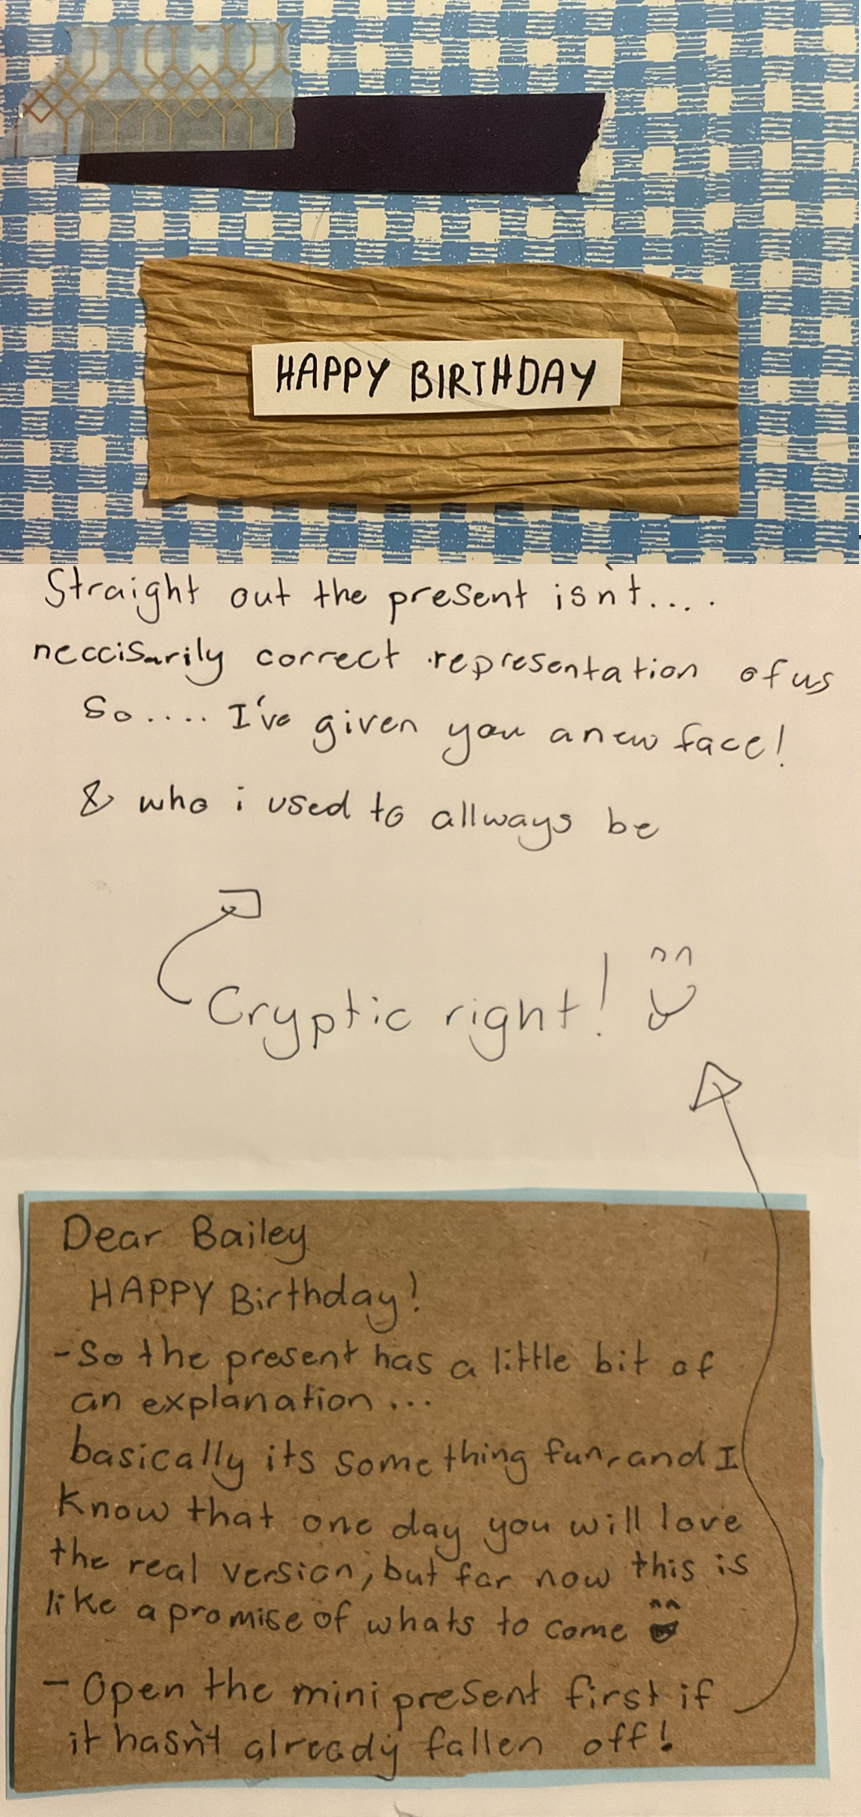 HAPPY BIRTHDAY
Straight out the present isn't....
neccisarily correct representation of us
So.... I've given you a new face!
& who i used to allways be
Cryptic right!
Dear Bailey
HAPPY Birthday!
-So the present has a little bit of
an explanation...
basically its something fun, and I
know that one day you will love
the real version, but for now this is
like a promise of whats to come
- Open the mini present first if
it hasn't already fallen off!